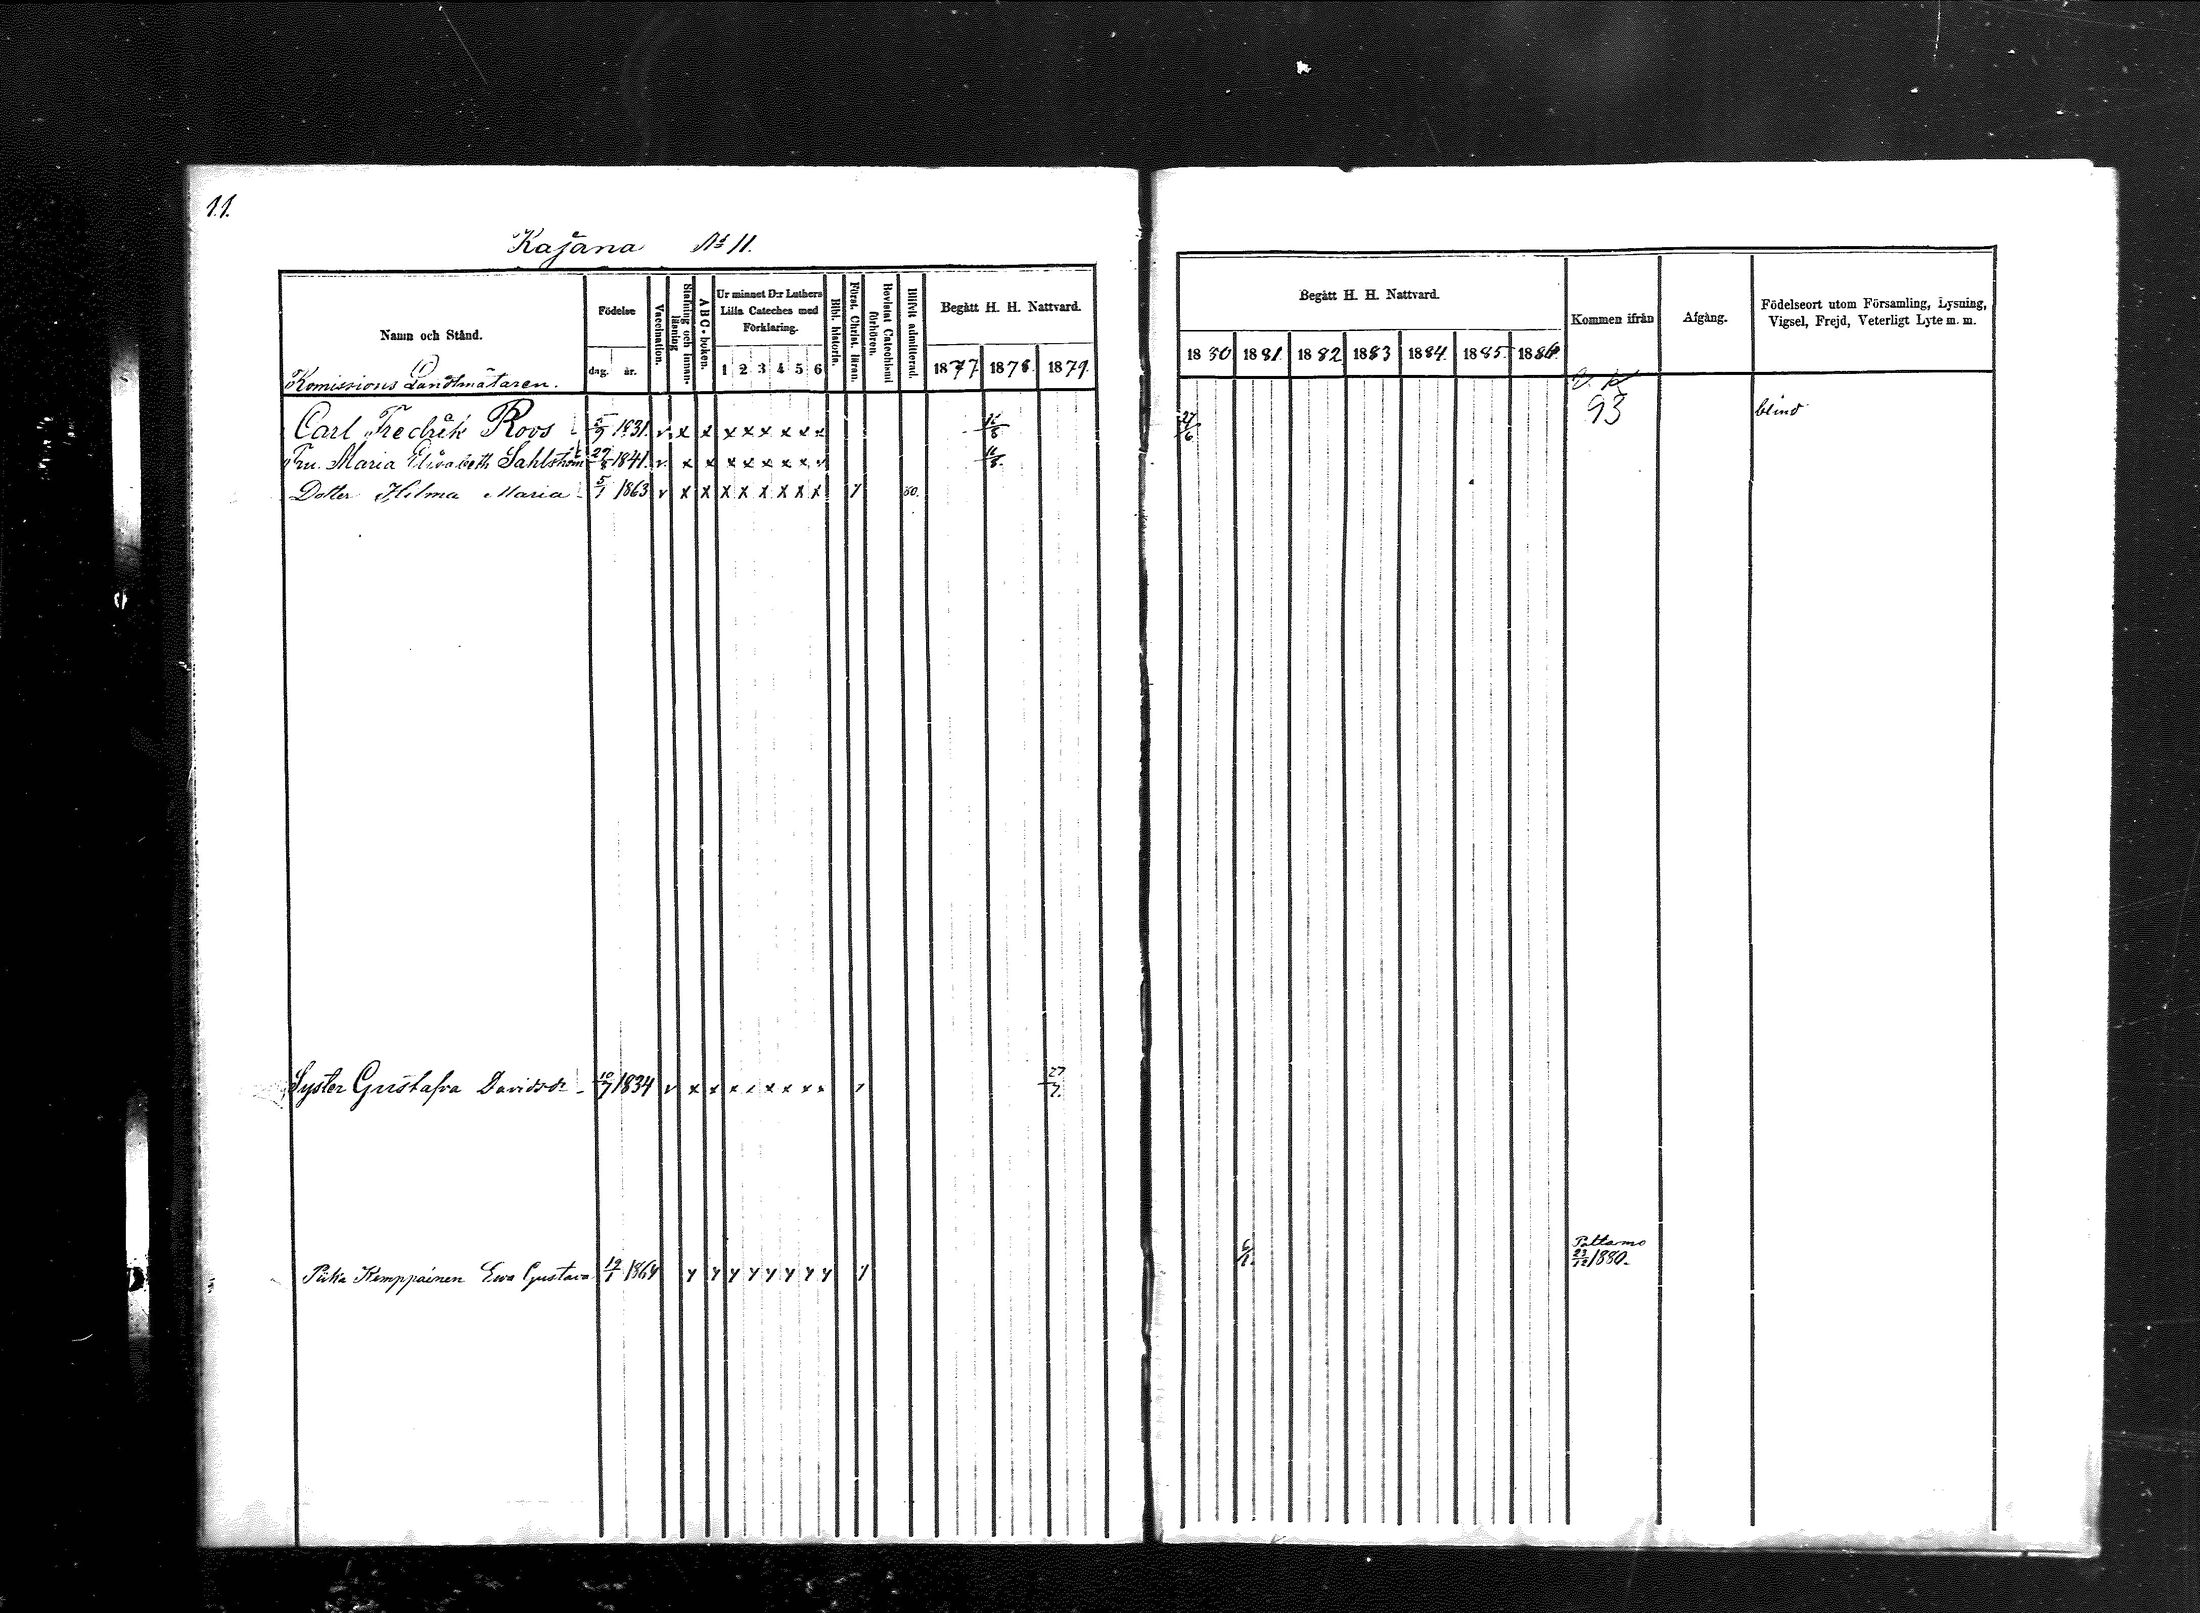 11.
Kajana № 11.
Namn och Stånd.
Födelse
dag. år.
Vaccination.
Stafning och innanläsning
ABC-boken.
Ur minnet D:r Luthers Lilla Cateches med Förklaring.
1 2 3 4 5 6
Bibl. historia.
Först. Christ. läran.
Bevistat Catechismi förhören.
Blifvit admitterad.
Begått H. H. Nattvard.
1877 1878 1879.
Komissions Landtmätaren.
Carl Fredrik Roos 5/9 1831. v x x x x x x x x 16/8
Fru Maria Elisabeth Sahlström 29/8 1841. v x x x x x x x v 16/8.
Dotter Hilma Maria 5/1 1863 v x x x x x x x x y 80.
Syster Gustafva Davidsdr 10/7 1834 v x x x x x x x x 27/7.
Piika Kemppainen Ewa Gustava 12/1 1864 y y y y y y y y y
Begått H. H. Nattvard.
1880 1881. 1882 1883 1884. 1885. 1886.
Kommen ifrån
Afgång.
Födelseort utom Församling, Lysning, Vigsel, Frejd, Veterligt Lyte m. m.
27/6 93 blind
6/1. Paltamo
23/12 1880.